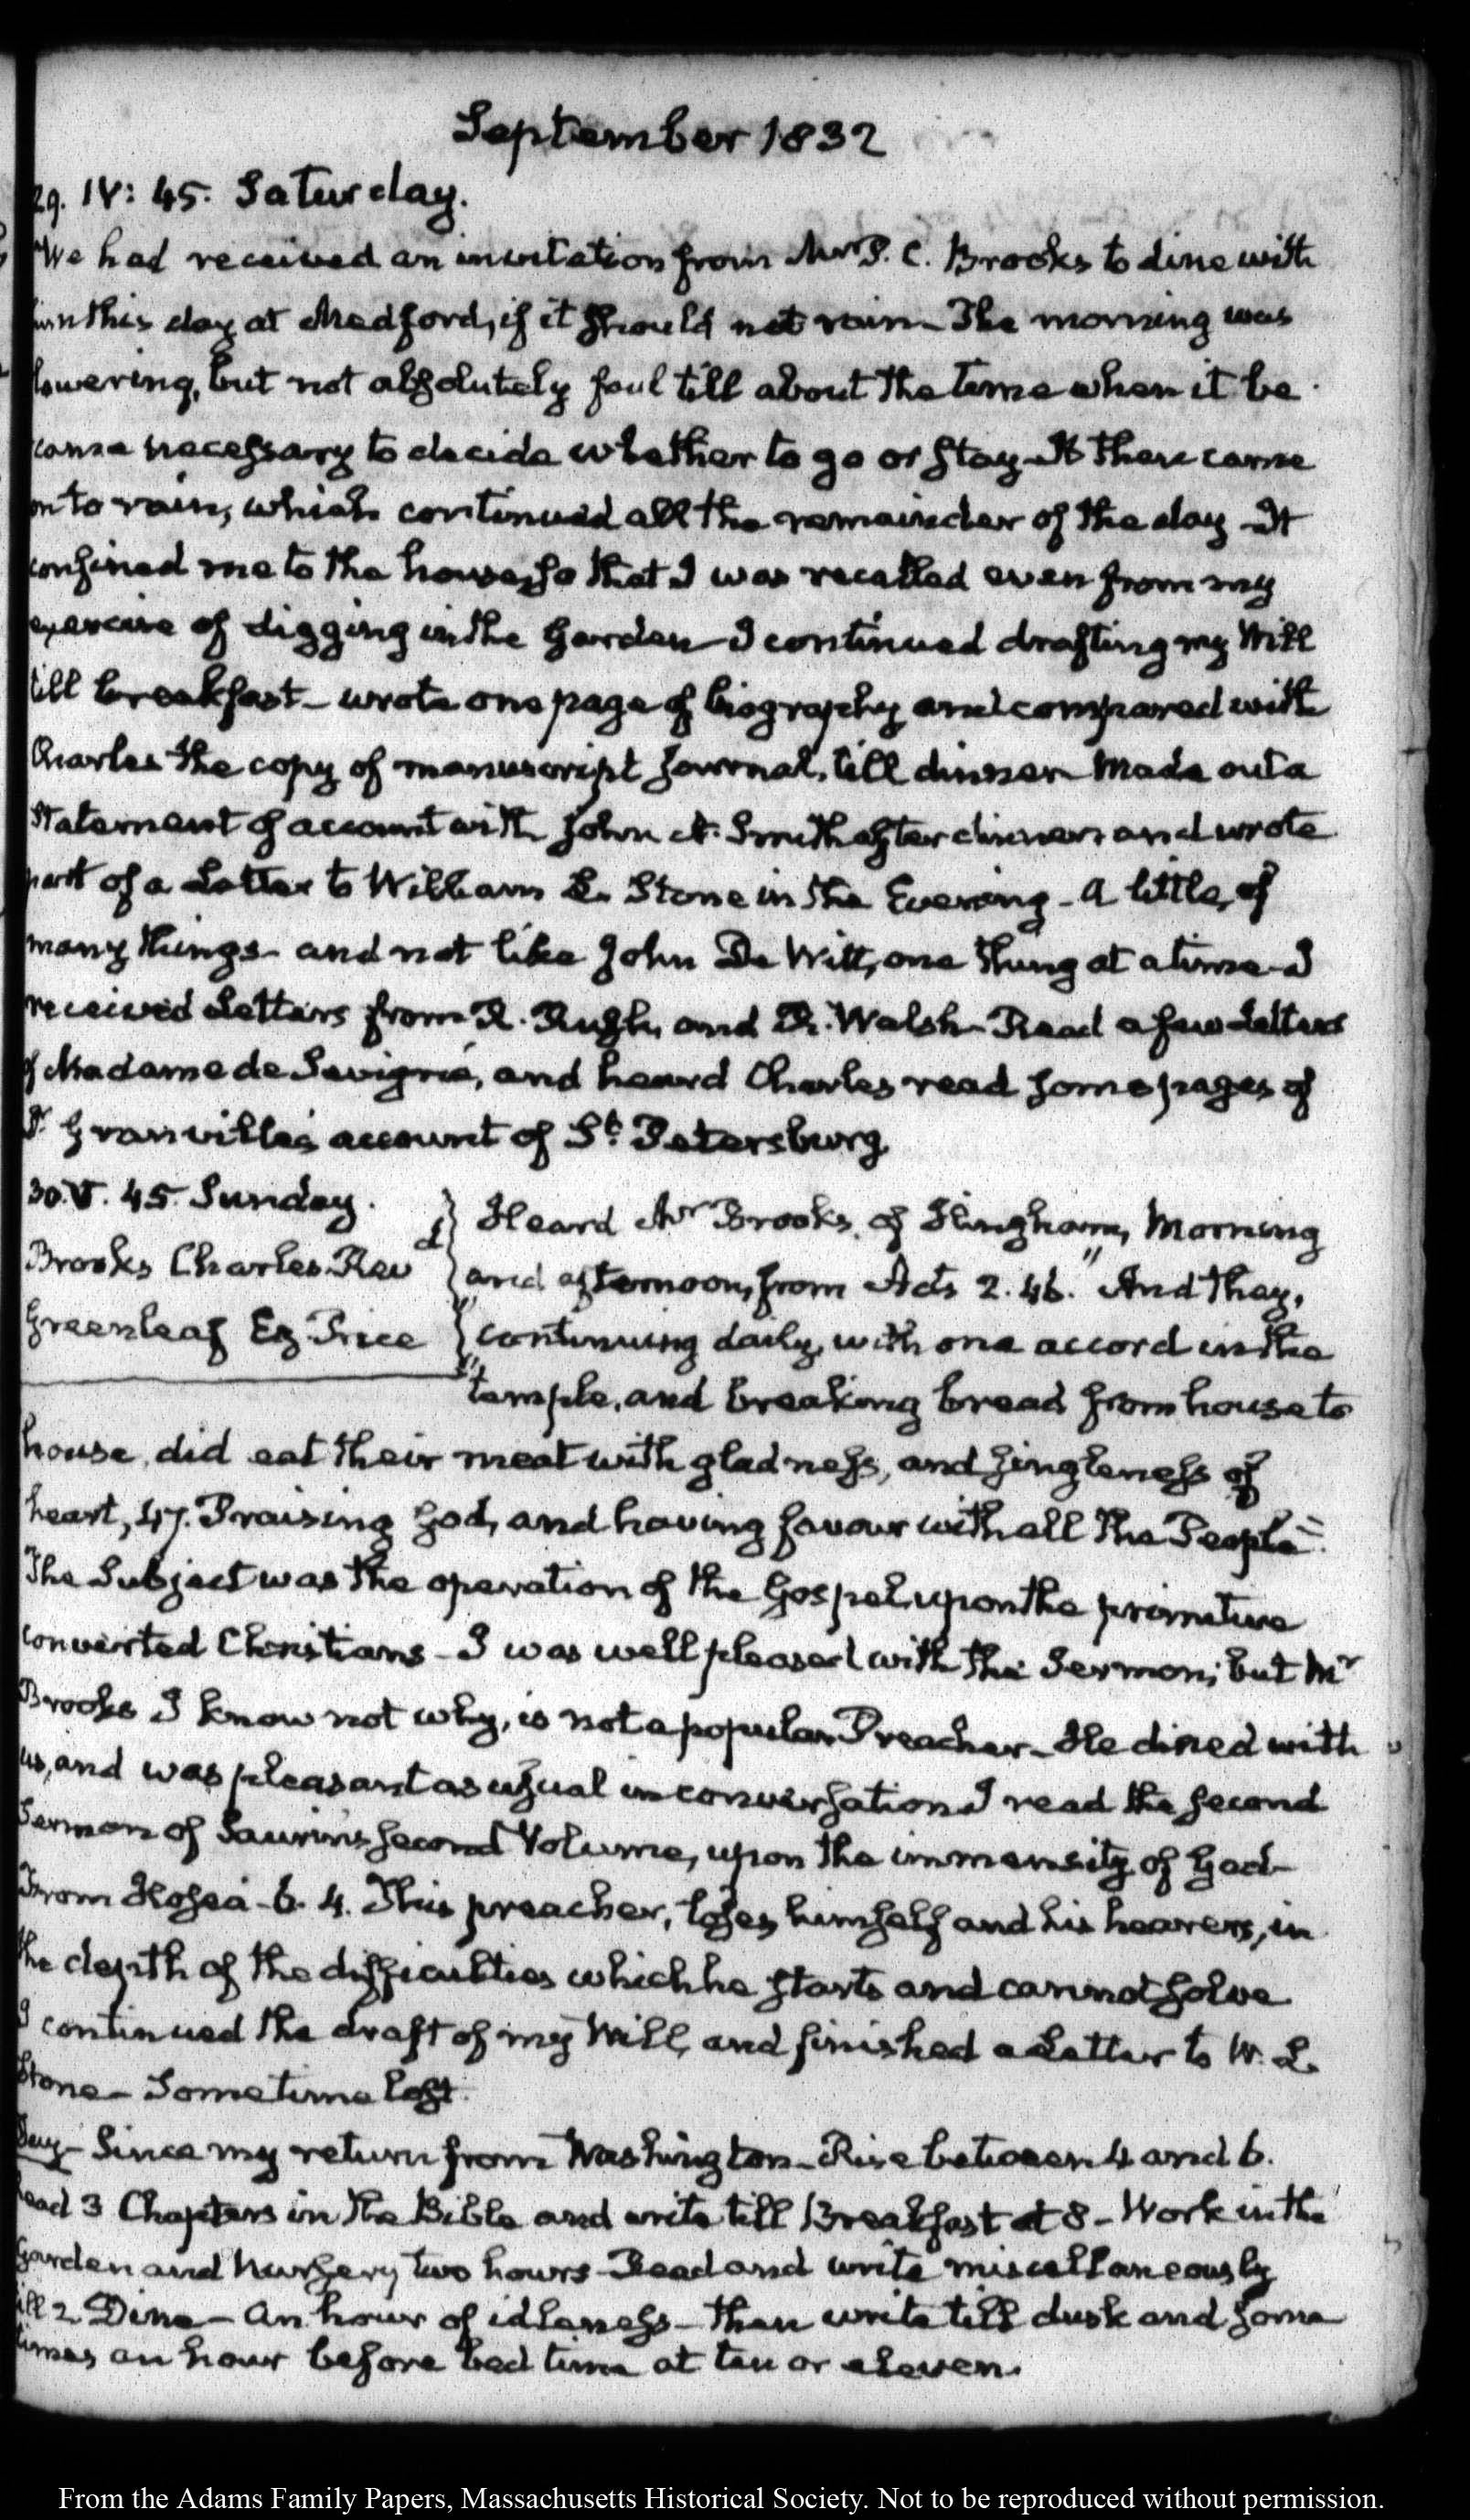 September 1832
29. IV: 45. Saturday.
We had received an invitation from Mr P. C. Brooks to dine with
him this day at Medford, if it should not rain - The morning was
lowering, but not absolutely foul till about the time when it be
came necessary to decide whether to go or stay - It then came
on to rain, which continued all the remainder of the day - It
confined me to the house, so that I was recalled even from my
exercise of digging in the Garden - I continued drafting my Will
till breakfast - wrote one page of biography and compared with
Charles the copy of manuscript Journal, till dinner Made out a
Statement of account with John A. Smith after dinner and wrote
part of a Letter to William L. Stone in the Evening - A little, of
many things - and not like John De Witt, one thing at a time - I
received Letters from R. Rush, and R. Walsh - Read a few Letters
of Madame de Sevigné, and heard Charles read some pages of
Dr Granville's account of St. Petersburg.
30. V. 45. Sunday.
Brooks Charles Revd
Greenleaf Ez. Price
Heard Mr Brooks, of Hingham, Morning
and afternoon, from Acts 2. 46. "And they,
"continuing daily, with one accord in the
"temple, and breaking bread from house to
house, did eat their meat with gladness, and singleness of
heart, 47. Praising God, and having favour with all the People"
The Subject was the operation of the Gospel, upon the primitive
converted Christians - I was well pleased with the Sermon; but Mr
Brooks I know not why, is not a popular Preacher - He dined with
us, and was pleasant as usual in conversation I read the second
Sermon of Saurin's second Volume, upon the immensity of God -
From Hosea - 6. 4. This preacher, loses himself and his hearers, in
the depth of the difficulties which he starts and cannot solve
I continued the draft of my Will, and finished a Letter to W. L.
Stone - Some time lost.
Day - Since my return from Washington - Rise between 4 and 6.
Read 3 Chapters in the Bible and write till Breakfast at 8 - Work in the
Garden and Nursery two hours - Read and write miscellaneously
till 2 Dine - An hour of idleness - then write till dusk and some
times an hour before bed time at ten or eleven.
From the Adams Family Papers, Massachusetts Historical Society. Not to be reproduced without permission.